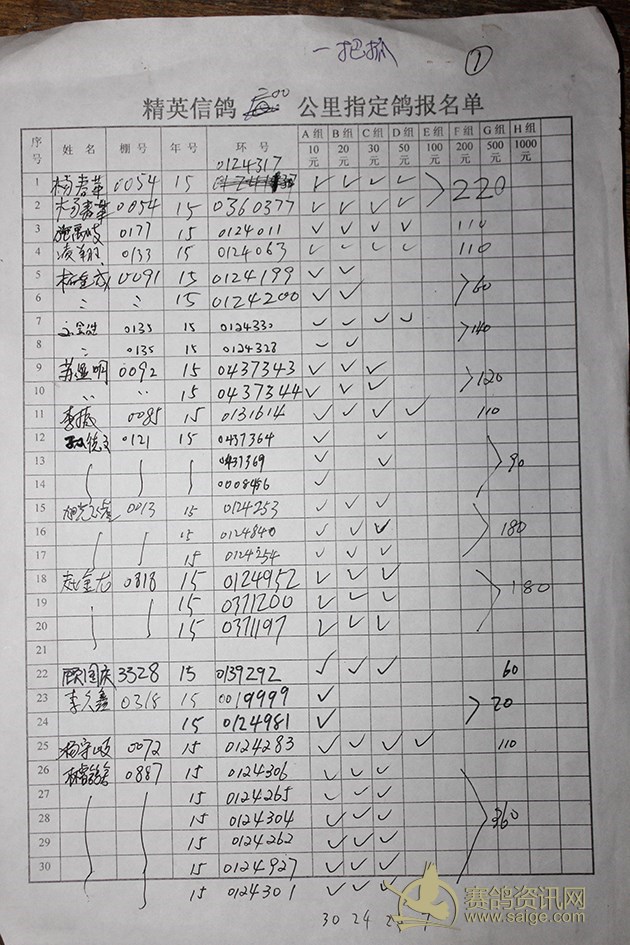 一把抓 ①
精英信鸽 三00 公里指定鸽报名单
序号 姓名 棚号 年号 环号 A组10元 B组20元 C组30元 D组50元 E组100元 F组200元 G组500元 H组1000元
0124317
1 0054 15 ✓ ✓ ✓ ✓ 220
2 0054 15 0360377 ✓ ✓ ✓ ✓
3 0177 15 0124011 ✓ ✓ ✓ ✓ 110
4 凌翔 0133 15 0124063 ✓ ✓ ✓ ✓ 110
5 0091 15 0124199 ✓ ✓
6 〃 〃 15 0124200 ✓ ✓ 60
7 0135 15 0124330 ✓ ✓ ✓ ✓ 140
8 〃 0135 15 0124328 ✓ ✓
9 0092 15 0437343 ✓ ✓ ✓ 120
10 〃 〃 15 0437344 ✓ ✓ ✓
11 0085 15 0131614 ✓ ✓ ✓ ✓ 110
12 0121 15 0437364 ✓ ✓
13 0437369 ✓ ✓ 90
14 ✓
15 0013 15 0124253 ✓ ✓ ✓
16 15 0124840 ✓ ✓ ✓ 180
17 15 0124254 ✓ ✓ ✓
18 0818 15 0124952 ✓ ✓ ✓ 180
19 15 0371200 ✓ ✓ ✓
20 15 0371197 ✓ ✓ ✓
21
22 顾国庆 3328 15 0139292 ✓ ✓ ✓ 60
23 李久鑫 0318 15 0019999 ✓ 20
24 15 0124981 ✓
25 杨守岐 0072 15 0124283 ✓ ✓ ✓ ✓ 110
26 0887 15 0124306 ✓ ✓ ✓
27 15 0124265 ✓ ✓ ✓
28 15 0124304 ✓ ✓ ✓ 360
29 15 0124262 ✓ ✓ ✓
30 15 0124927 ✓ ✓ ✓
15 0124301 ✓ ✓ ✓
30 24
赛鸽资讯网
www.saige.com